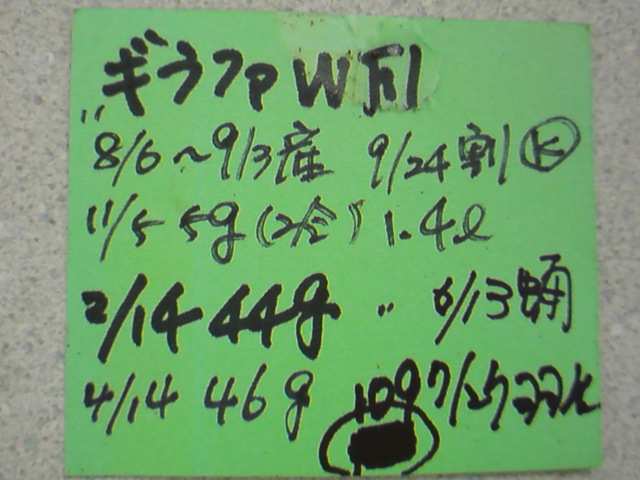 ギラファWF1
〃8/6～9/3産 9/24割 Ⓚ
11/5 5g(2令) 1.4ℓ
2/14 44g 〃 6/13蛹
4/14 46g 109 7/27羽化